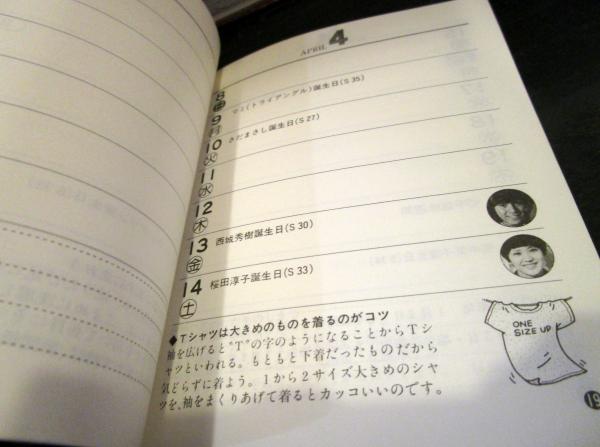 APRIL 4
8
㊐
マミ(トライアングル)誕生日(S35)
9
㊊
さだまさし誕生日(S27)
10
㊋
11
㊌
12
㊍
13
㊎
西城秀樹誕生日(S30)
14
㊏
桜田淳子誕生日(S33)
◆Tシャツは大きめのものを着るのがコツ
袖を広げると"T"の字のようになることからTシ
ャツといわれる。もともと下着だったものだから
気どらずに着よう。1から2サイズ大きめのシャ
ツを、袖をまくりあげて着るとカッコいいのです。
ONE
SIZE UP
19